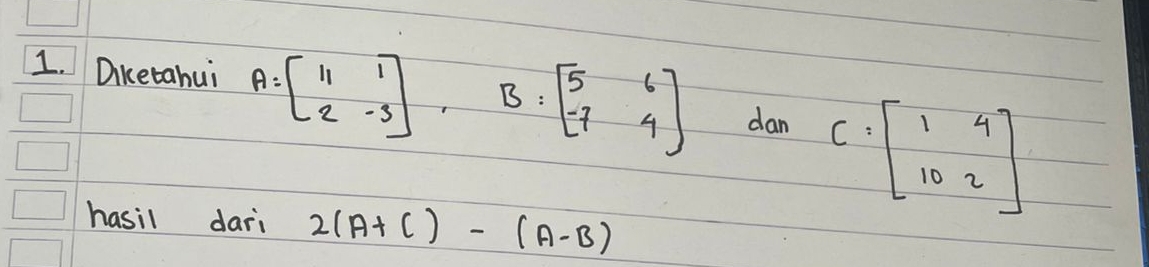 1. Diketahui A = [11 1 2 -3], B : [5 6 -7 4] dan C : [1 4 10 2]
hasil dari 2(A+C) - (A-B)